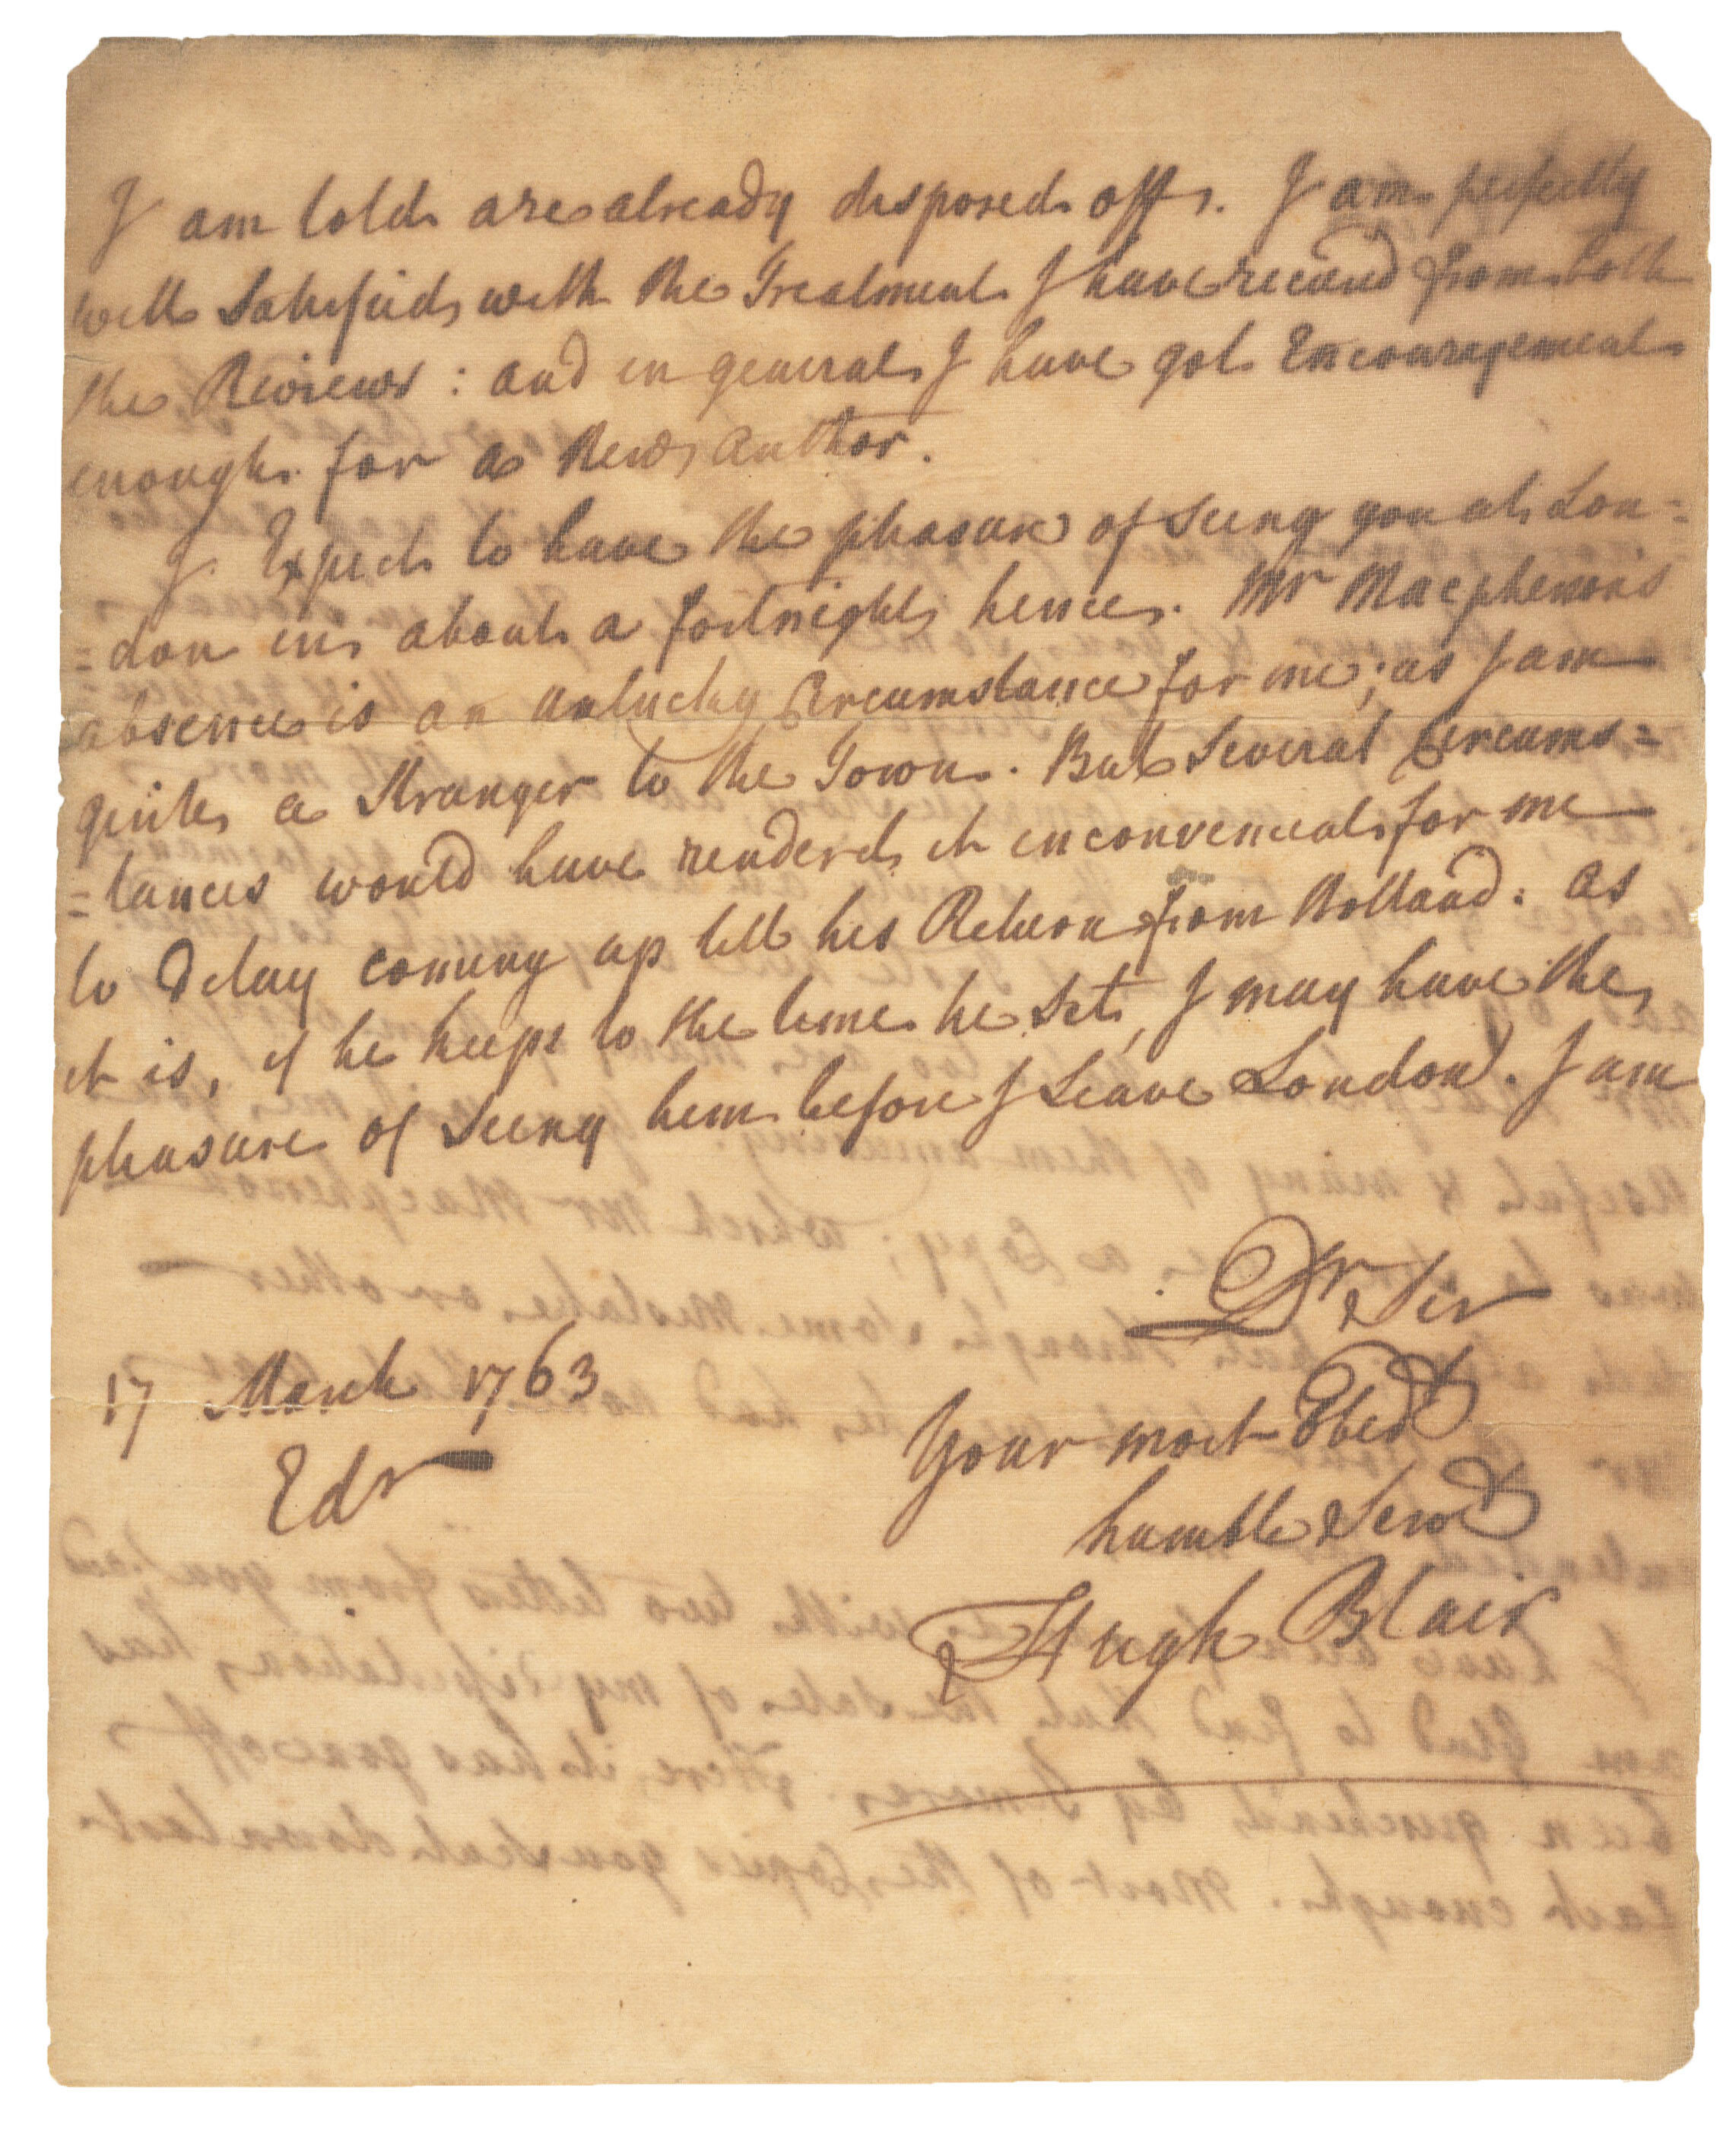 I am told are already disposed off. I am perfectly
well Satisfied with the Treatment I have received from both
the Reviews: and in general I have got Encouragement
enough for a New Author.
I Expect to have the pleasure of seeing you at Lon=
=don in about a fortnight hence. Mr Macpherson's
absence is an unlucky Circumstance for me; as I am
quite a Stranger to the Town. But Several Circums=
=tances would have renderd it inconvenient for me
to Delay coming up till his Return from Holland: as
it is, if he keeps to the time he Set, I may have the
pleasure of Seeing him before I Leave London. I am
Dr Sir
17 March 1763
Your most Obedt
Edr
humble Servt
Hugh Blair